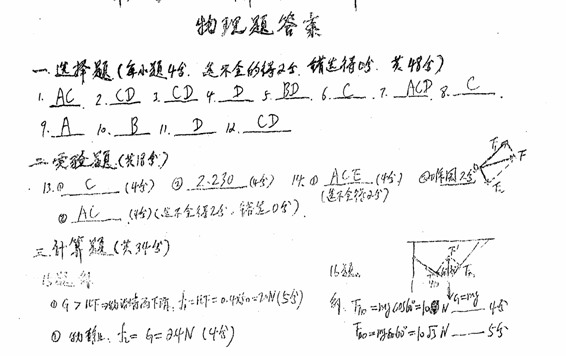 物理题答案
一.选择题(每小题4分.选不全的得2分.错选得0分.共48分)
1. AC 2. CD 3. CD 4. D 5. BD 6. C 7. ACD 8. C
9. A 10. B 11. D 12. CD
二.实验题(共18分)
13.① C (4分) ② 2.230 (4分) 14.① ACE (4分) ②作图2分
(选不全得2分)
② AC (4分)(选不全得2分.错选0分)
三.计算题(共34分)
15题.解
16题.
① G > μF 物沿墙面下滑, f₁=μF=0.4×50=20N (5分)
② 物静止. f₂= G=24N (4分)
解. =mgcos60°=10 N 4分
G=mg
=10√3 N 5分